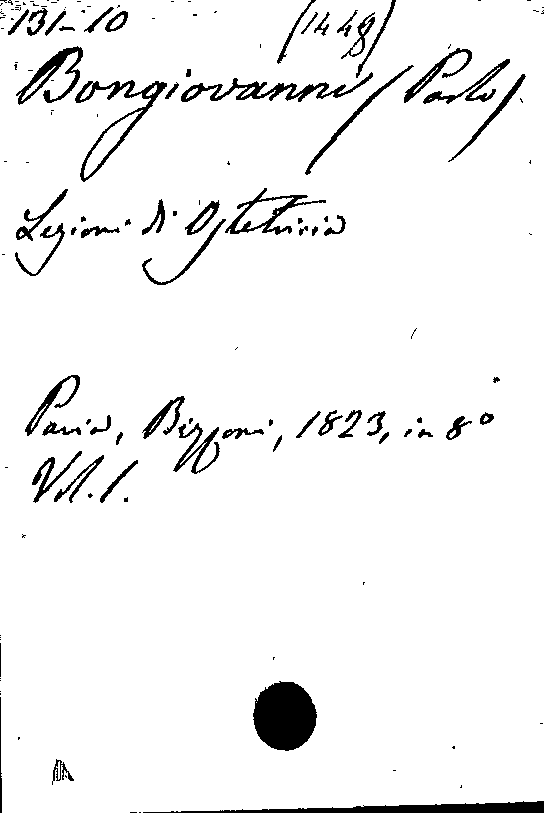 131-10 (1448)
Bongiovanni (Paolo).
Lezioni di Ostetricia
Pavia, Bizzoni, 1823, in 8º
Vol. 1.